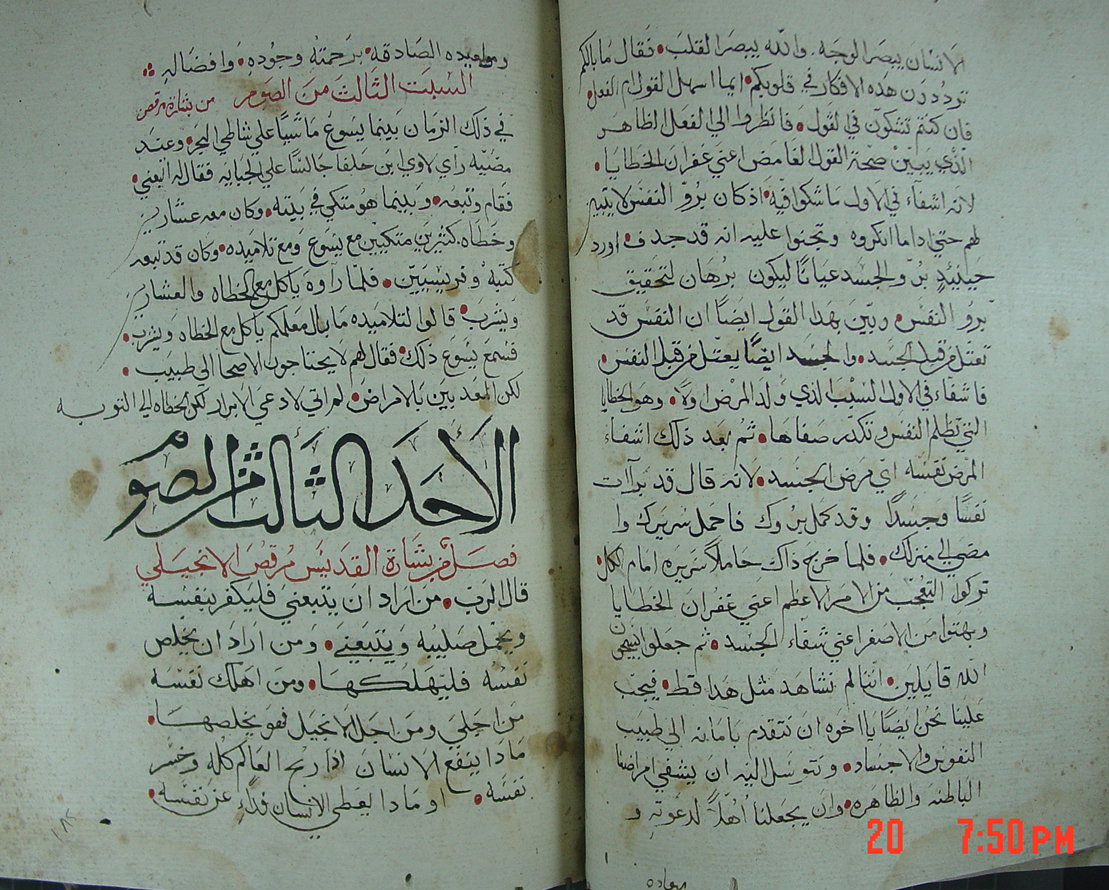 الانسان يبصر الوجه. والله يبصر القلب. فقال ما بالكم
ترددون هذه الافكار في قلوبكم. ايما اسهل القول ام الفعل.
فان كنتم تشكون في القول. فانظروا الي الفعل الظاهر
الذي يبين صحة القول الغامض اعني غفران الخطايا.
لانه اشفاء في الاول ما شكوا فيه. اذ كان برو النفس لا يتبين
لهم حتي اذا ما انكروه وتجنوا عليه انه قد جدف. اورد
حينيدٍ برو الجسد عيانًا ليكون برهان لتحقيق
برو النفس. وبين بهذا القول ايضًا ان النفس قد
تعتل من قبل الجسد. والجسد ايضًا يعتل من قبل النفس.
فاشفاء في الاول السبب الذي ولد المرض اولاً. وهو الخطايا
التي تظلم النفس وتكدر صفاها. ثم بعد ذلك اشفاء
المرض نفسه اي مرض الجسد. لانه قال قد برأت
نفسًا وجسدًا وقد كمل بروك فاحمل سريرك وا
مضي الي منزلك. فلما خرج ذاك حاملاً سريره امام الكل.
تركوا التعجب من الامر الاعظم اعني غفران الخطايا
وبهتوا من الاصغر اعني شفاء الجسد. ثم جعلوا يسبحون
الله قايلين. اننا لم نشاهد مثل هذا قط. فيجب
علينا نحن ايضًا يا اخوه ان نتقدم بامانه الي طبيب
النفوس والاجساد. ونتوسل اليه ان يشفي امراضنا
الباطنه والظاهره. وان يجعلنا اهلاً لدعوته و
مواعيده
ومواعيده الصادقه. برحمته وجوده. وافضاله
السبت الثالث من الصوم من بشارة مرقص
في ذلك الزمان بينما يسوع ماشيًا علي شاطي البحر. وعند
مضيه راي لاوي ابن حلفا جالسًا علي الجبايه فقال له اتبعني.
فقام وتبعه. وبينما هو متكي في بيته. وكان معه عشارين
وخطاه. كثيرين متكيين مع يسوع ومع تلاميذه. وكان قد تبعه
كتبه وفريسيين. فلما راوه ياكل مع الخطاه والعشارين
ويشرب. قالوا لتلاميذه ما بال معلمكم ياكل مع الخطاه ويشرب.
فسمع يسوع ذلك. فقال لهم لا يحتاجون الاصحا الي طبيب.
لكن المعذبين بالامراض. لم اتي لادعي الابرار لكن الخطاه الي التوبه
الاحد الثالث من الصوم
فصل من بشارة القديس مرقص الانجيلي
قال الرب. من اراد ان يتبعني فليكفر بنفسه
ويحمل صليبه ويتبعني. ومن اراد ان يخلص
نفسه فليهلكها. ومن اهلك نفسه
من اجلي ومن اجل الانجيل فهو يخلصها.
ماذا ينفع الانسان اذا ربح العالم كله وخسر
نفسه. او ماذا يعطي الانسان فداء عن نفسه.
١٨٢
20 7:50 PM